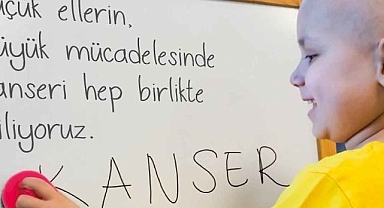 üçük ellerin,
üyük mücadelesinde
anseri hep birlikte
iliyoruz.
KANSER